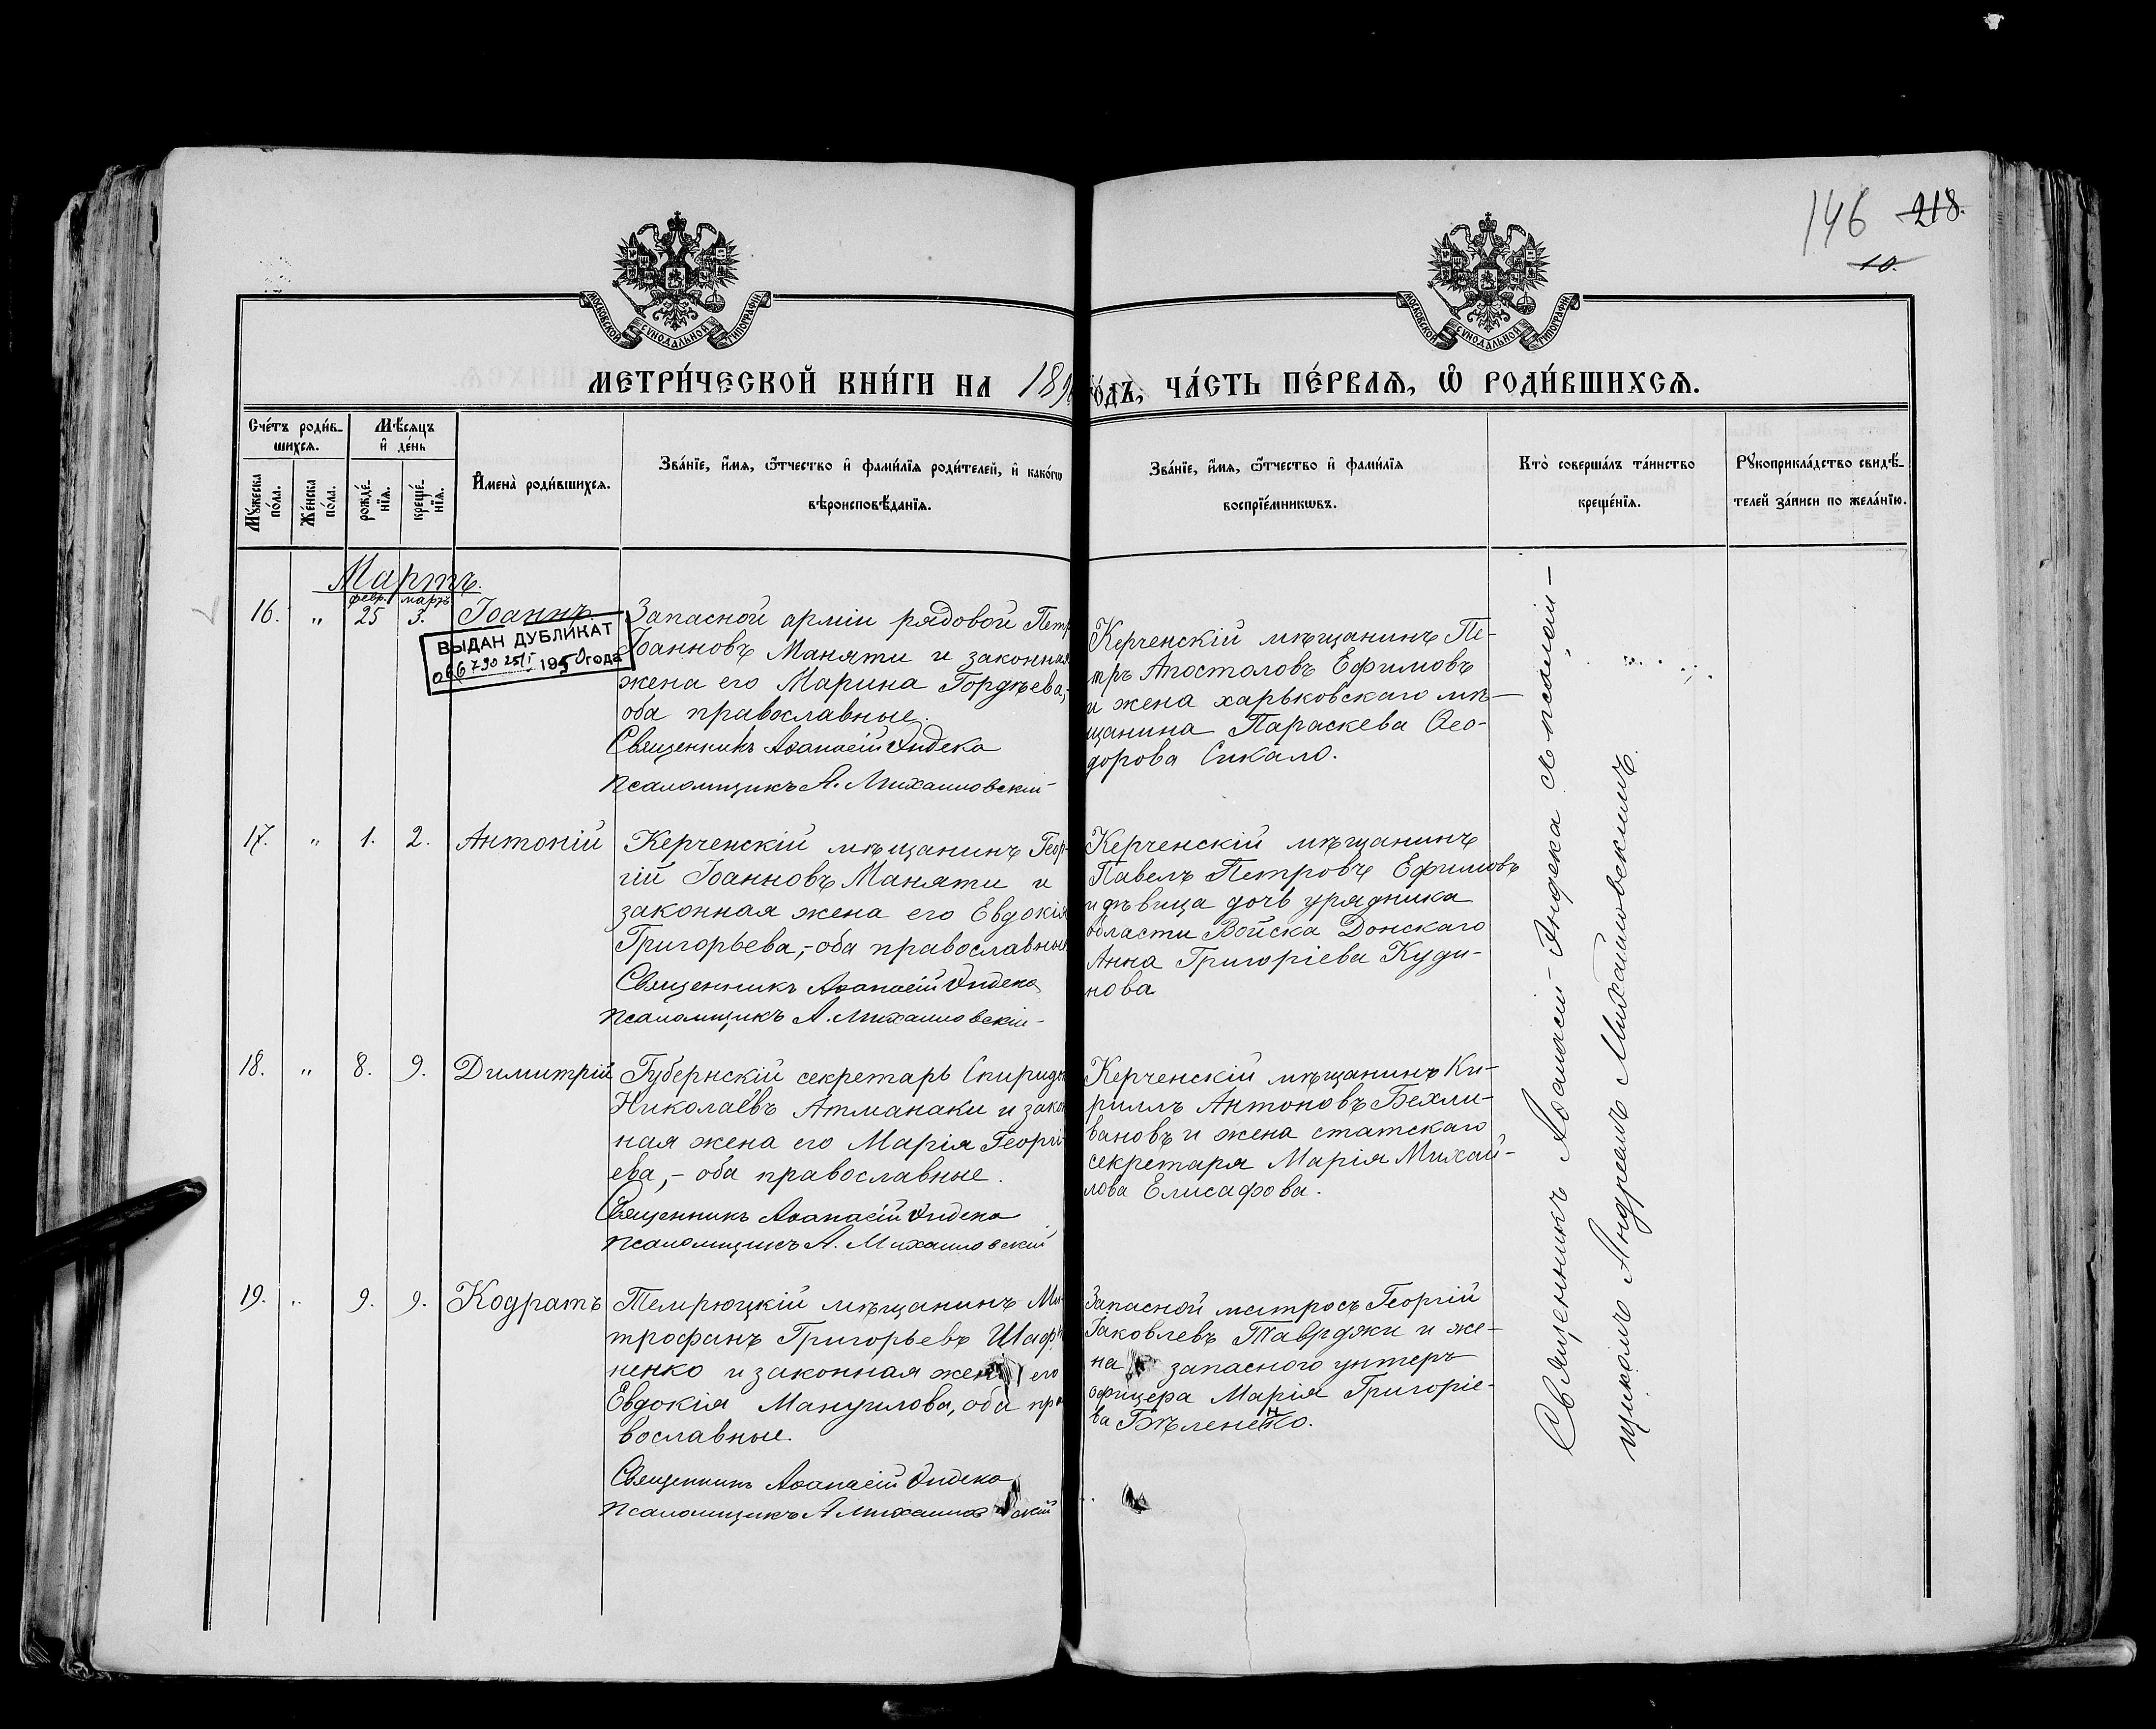 146 218.
10.
МОСКОВСКОЙ СѴНОДАЛЬНОЙ ТИПОГРАФІИ
МОСКОВСКОЙ СѴНОДАЛЬНОЙ ТИПОГРАФІИ
МЕТРИ́ЧЕСКОЙ КНИ́ГИ НА 189
О́ДЪ, ЧА́СТЬ ПЕ́РВАѦ, Ѡ҆ РОДИ́ВШИХСѦ.
Сче́тъ роди́в-
шихсѧ.
Мꙋ́жеска по́ла.
Же́нска по́ла.
Мѣ́сѧцъ
и҆ де́нь
рожде́-
нїѧ.
креще́-
нїѧ.
И҆мена̀ роди́вшихсѧ.
Зва́нїе, и҆́мѧ, ѻ҆́тчество и҆ фами́лїѧ роди́телей, и҆ како́гѡ
вѣроисповѣ́данїѧ.
Зва́нїе, и҆́мѧ, ѻ҆́тчество и҆ фами́лїѧ
воспрїе́мникѡвъ.
Кто̀ соверша́лъ та́инство
креще́нїѧ.
Рꙋкоприкла́дство свидѣ́-
телей за́писи по жела́нїю.
Мартъ.
февр. мартъ
16. " 25 3. Іоаннъ
ВЫДАН ДУБЛИКАТ
1950 года
Запасной арміи рядовой Петр
Іоанновъ Маняти и законная
жена его Марина Гордѣева,-
оба православные.
Священникъ Аѳанасій Индека
Псаломщикъ А. Михайловскій
Керченскій мѣщанинъ Пе-
тръ Апостоловъ Ефимовъ
и жена харьковскаго мѣ-
щанина Параскева Ѳео-
дорова Сикало.
17. " 1. 2. Антоній
Керченскій мѣщанинъ Геор-
гій Іоанновъ Маняти и
законная жена его Евдокія
Григорьева,-оба православные
Священникъ Аѳанасій Индека
Псаломщикъ А. Михайловскій
Керченскій мѣщанинъ
Павелъ Петровъ Ефимовъ
и дѣвица дочь урядника
области Войска Донскаго
Анна Григоріева Куди-
нова
18. " 8. 9. Димитрій
Губернскій секретарь Спиридо
Николаевъ Атманаки и закон
ная жена его Марія Георгі-
ева,- оба православные.
Священникъ Аѳанасій Индека
Псаломщикъ А. Михайловскій
Керченскій мѣщанинъ Ки-
риллъ Антоновъ Бехли-
вановъ и жена статскаго
секретаря Марія Михай-
лова Елисафова.
19. " 9. 9. Кодратъ
Темрюцкій мѣщанинъ Ми-
трофанъ Григорьевъ
ненко и законная жена его
Евдокія Мануилова, оба пра
вославные.
Священникъ Аѳанасій Индека
Псаломщикъ А Михайловскій
Запасной матросъ Георгій
Іаковлевъ Тавурджи и же-
на запасного унтеръ
офицера Марія Григоріе-
ва Бѣлененко.
Священникъ Аѳанасій Индека съ псалом-
щикомъ Андреемъ Михайловскимъ.